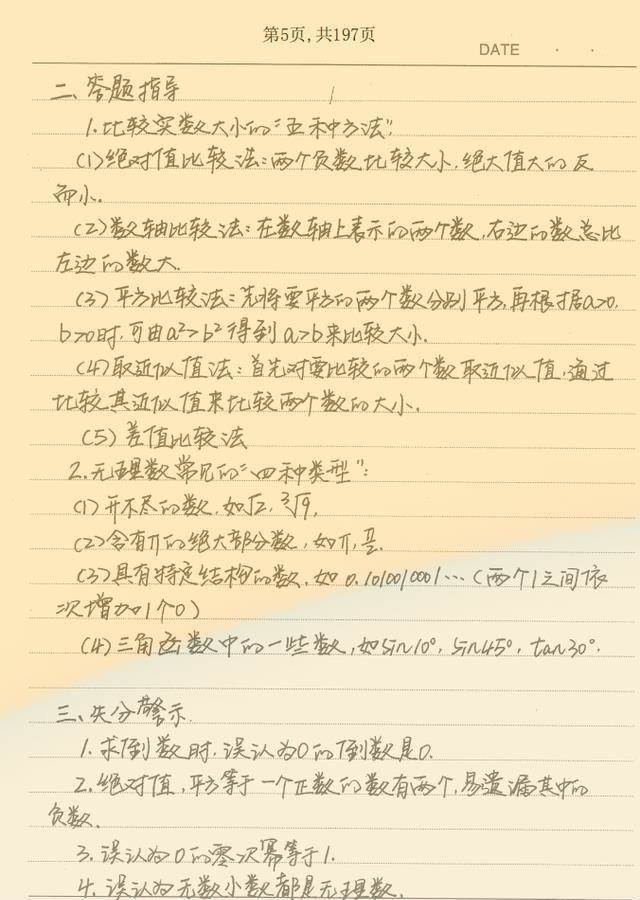 第5页,共197页
DATE · ·
二、答题指导
1.比较实数大小的“五种方法”:
(1)绝对值比较法:两个负数比较大小,绝大值大的反
而小.
(2)数轴比较法:在数轴上表示的两个数,右边的数总比
左边的数大.
(3)平方比较法:先将要平方的两个数分别平方,再根据a>0,
b>0时,可由a²>b²得到a>b来比较大小.
(4)取近似值法:首先对要比较的两个数取近似值,通过
比较其近似值来比较两个数的大小.
(5)差值比较法
2.无理数常见的“四种类型”:
(1)开不尽的数,如√2,³√9,
(2)含有π的绝大部分数,如π,
(3)具有特定结构的数,如0.1010010001…(两个1之间依
次增加1个0)
(4)三角函数中的一些数,如sin10°,sin45°,tan30°.
三、失分警示
1.求倒数时,误认为0的倒数是0.
2.绝对值,平方等于一个正数的数有两个,易遗漏其中的
负数.
3.误认为0的零次幂等于1.
4.误认为无数小数都是无理数.